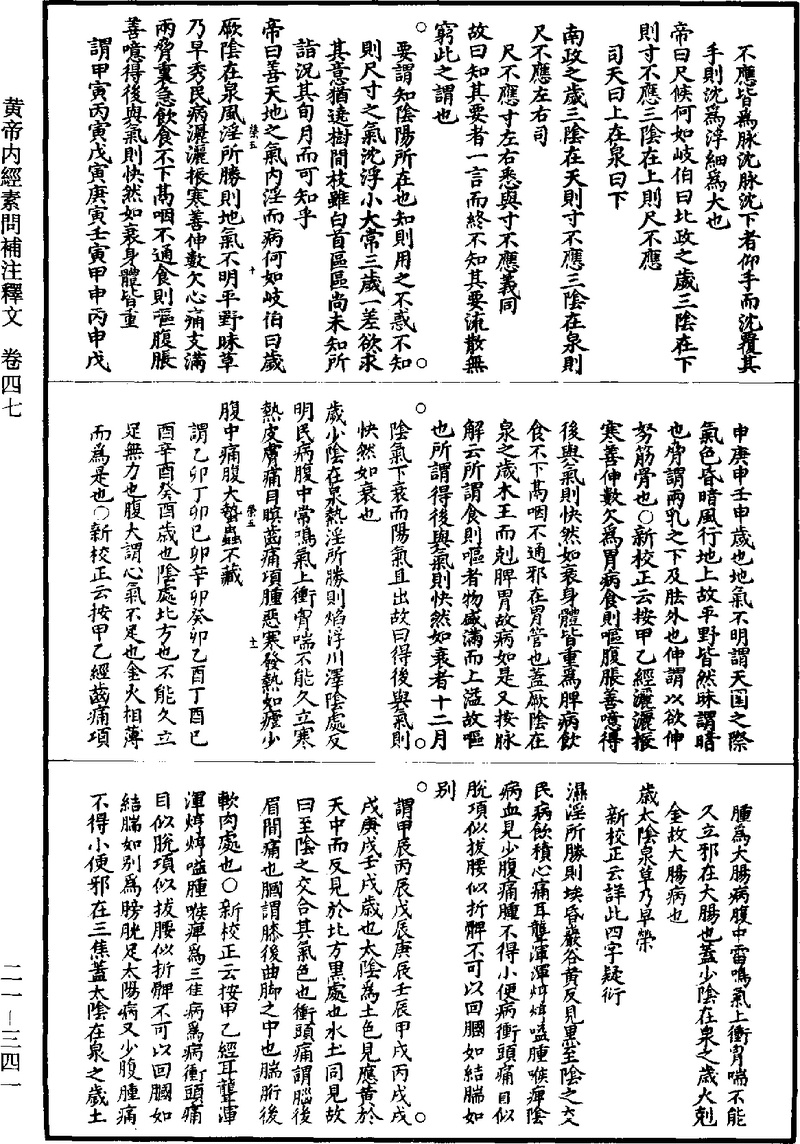 黃帝內經素問補注釋文　卷四七
二一—三四一
不應皆爲脉沈脉沈下者仰手而沈覆其
手則沈爲浮細爲大也
帝曰尺候何如岐伯曰北政之歲三陰在下
則寸不應三陰在上則尺不應
司天曰上在泉曰下
南政之歲三陰在天則寸不應三陰在泉則
尺不應左右司
尺不應寸左右悉與寸不應義同
故曰知其要者一言而終不知其要流散無
窮此之謂也
要謂知陰陽所在也知則用之不惑不知
則尺寸之氣沈浮小大常三歲一差欲求
其意猶遶樹問枝雖白首區區尚未知所
詣況其旬月而可知乎
帝曰善天地之氣內淫而病何如岐伯曰歲
厥陰在泉風淫所勝則地氣不明平野昧草
乃早秀民病灑灑振寒善伸數欠心痛支滿
兩脅裏急飲食不下鬲咽不通食則嘔腹脹
善噫得後與氣則快然如衰身體皆重
謂甲寅丙寅戊寅庚寅壬寅甲申丙申戊
申庚申壬申歲也地氣不明謂天圍之際
氣色昏暗風行地上故平野皆然昧謂暗
也脅謂兩乳之下及胠外也伸謂以欲伸
努筋骨也○新校正云按甲乙經灑灑振
寒善伸數欠爲胃病食則嘔腹脹善噫得
後與氣則快然如衰身體皆重爲脾病飲
食不下鬲咽不通邪在胃管也蓋厥陰在
泉之歲木王而剋脾胃故病如是又按脉
解云所謂食則嘔者物盛滿而上溢故嘔
也所謂得後與氣則快然如衰者十二月
陰氣下衰而陽氣且出故曰得後與氣則
快然如衰也
歲少陰在泉熱淫所勝則焰浮川澤陰處反
明民病腹中常鳴氣上衝胷喘不能久立寒
熱皮膚痛目瞑齒痛䪼腫惡寒發熱如瘧少
腹中痛腹大蟄蟲不藏
謂乙卯丁卯己卯辛卯癸卯乙酉丁酉己
酉辛酉癸酉歲也陰處北方也不能久立
足無力也腹大謂心氣不足也金火相薄
而爲是也○新校正云按甲乙經齒痛䪼
腫爲大腸病腹中雷鳴氣上衝胷喘不能
久立邪在大腸也蓋少陰在泉之歲火剋
金故大腸病也
歲太陰泉草乃早榮
新校正云詳此四字疑衍
濕淫所勝則埃昏巖谷黃反見黑至陰之交
民病飲積心痛耳聾渾渾焞焞嗌腫喉痺陰
病血見少腹痛腫不得小便病衝頭痛目似
脫項似拔腰似折髀不可以回膕如結腨如
別
謂甲辰丙辰戊辰庚辰壬辰甲戌丙戌戊
戌庚戌壬戌歲也太陰爲土色見應黃於
天中而反見於北方黑處也水土同見故
曰至陰之交合其氣色也衝頭痛謂腦後
眉間痛也膕謂膝後曲脚之中也腨胻後
軟肉處也○新校正云按甲乙經耳聾渾
渾焞焞嗌腫喉痺爲三焦病爲病衝頭痛
目似脫項似拔腰似折髀不可以回膕如
結腨如別爲膀胱足太陽病又少腹腫痛
不得小便邪在三焦蓋太陰在泉之歲土